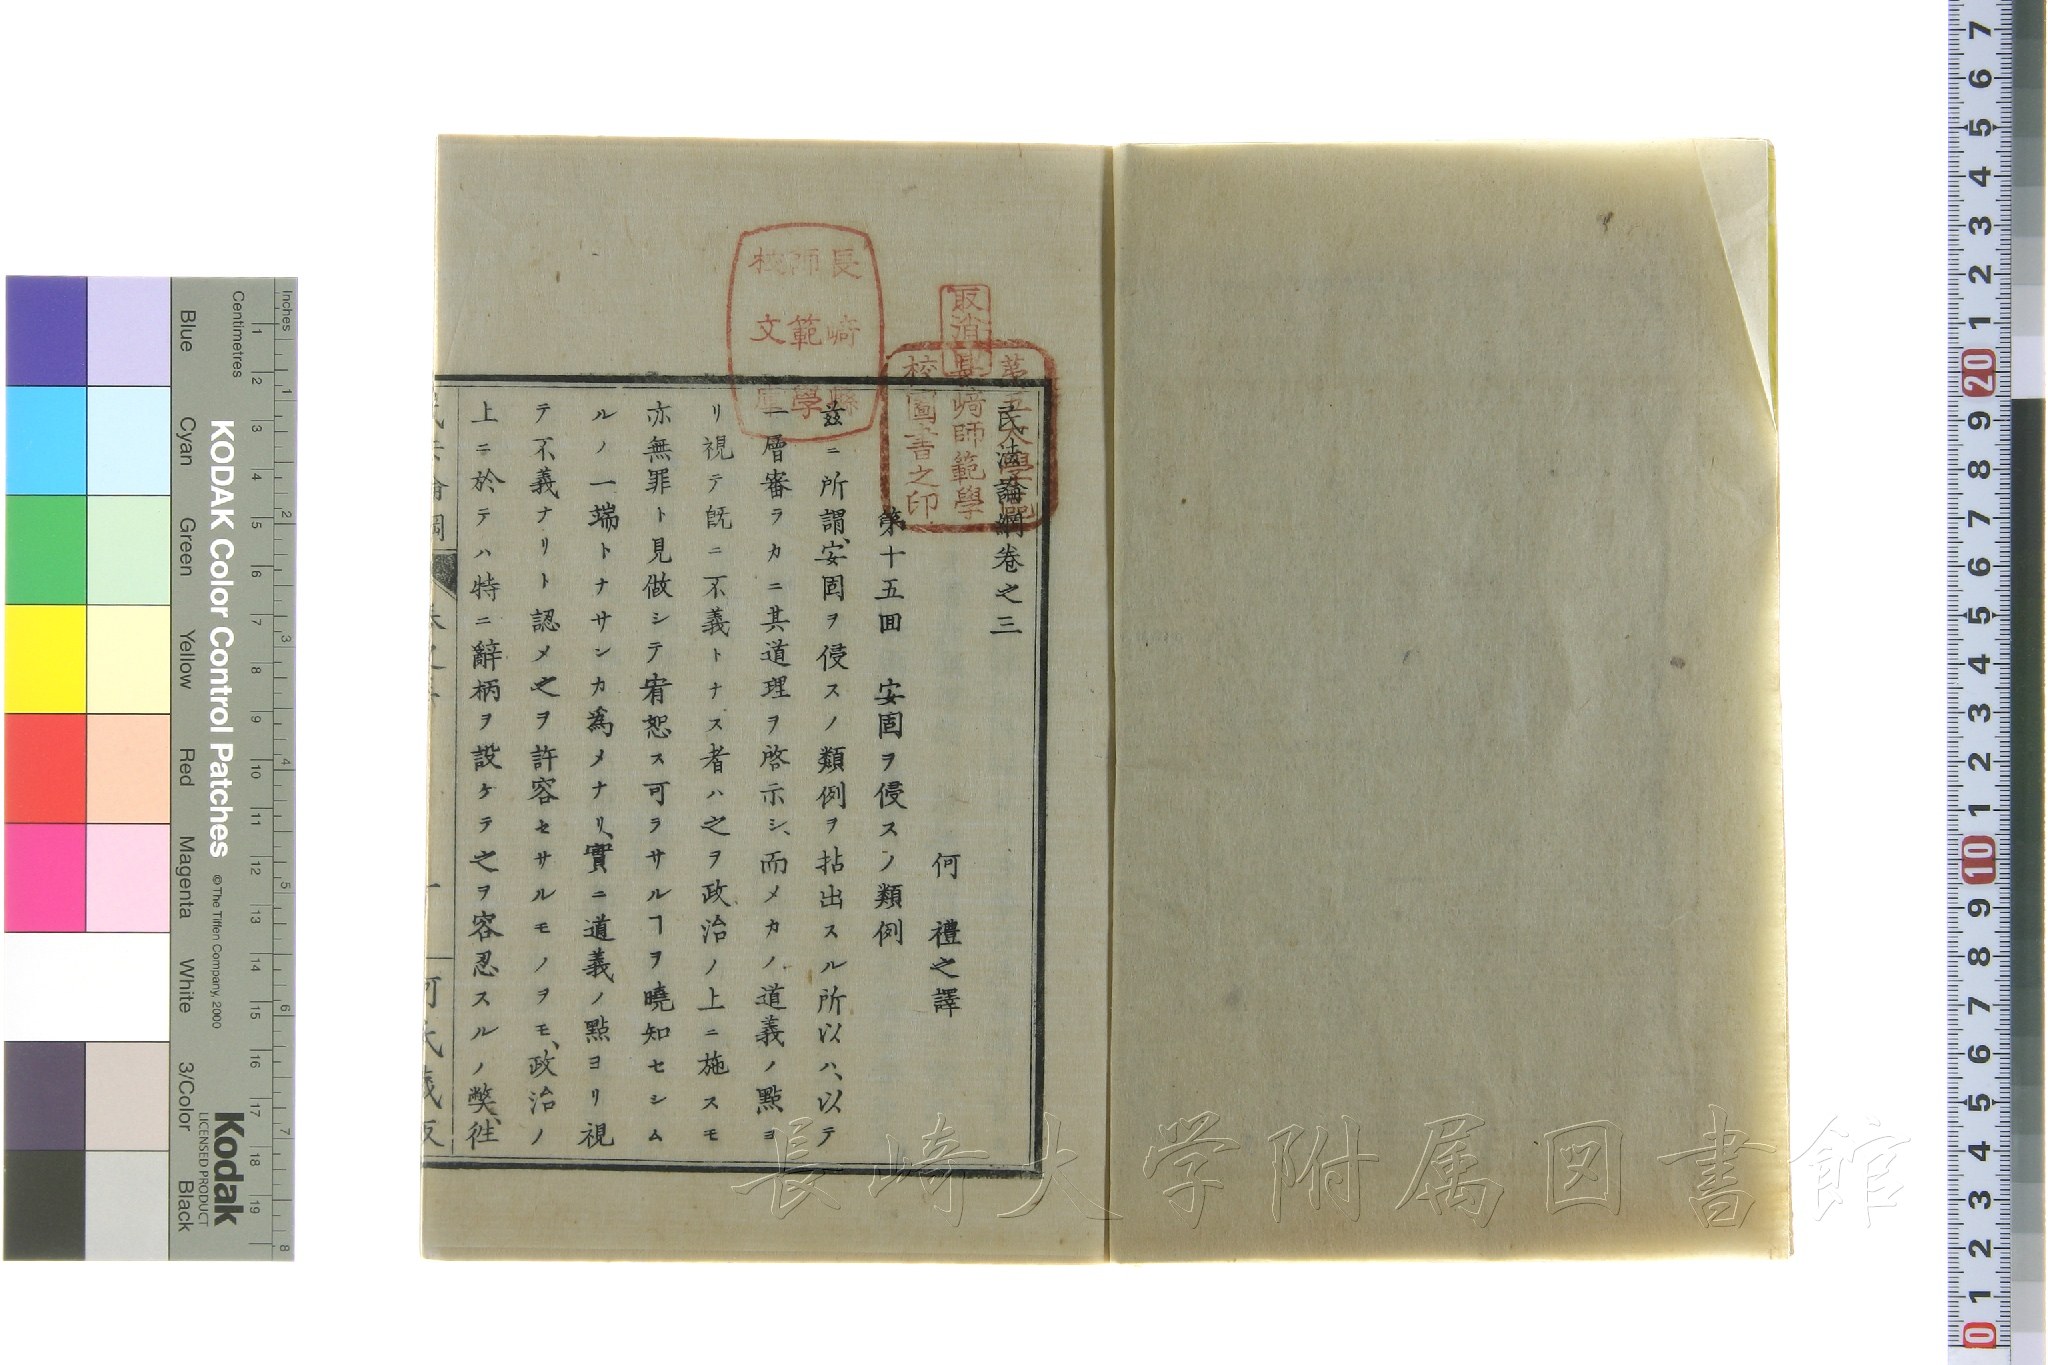 民法論綱卷之三
何禮之譯
第十五回 安固ヲ侵スノ類例
茲ニ所謂、安固ヲ侵スノ類例ヲ拈出スル所以ハ、以テ
一層審ラカニ其道理ヲ啓示シ、而メカノ道義ノ點ヨ
リ視テ既ニ不義トナス者ハ之ヲ政治ノ上ニ施スモ
亦無罪ト見做シテ宥恕ス可ラサルヿヲ曉知セシム
ルノ一端トナサンカ爲メナリ、實ニ道義ノ點ヨリ視
テ不義ナリト認メ之ヲ許容セサルモノヲモ、政治ノ
上ニ於テハ特ニ辭柄ヲ設ケテ之ヲ容忍スルノ弊、徃
長崎縣
師範學
校文庫
取消
第五大學區
長崎師範學
校圖書之印
長崎大学附属図書館
KODAK Color Control Patches
©The Tiffen Company, 2000
Kodak
LICENSED PRODUCT
Inches
Centimetres
1 2 3 4 5 6 7 8
1 2 3 4 5 6 7 8 9 10 11 12 13 14 15 16 17 18 19
Blue
Cyan
Green
Yellow
Red
Magenta
White
3/Color
Black
0 1 2 3 4 5 6 7 8 9 10 1 2 3 4 5 6 7 8 9 20 1 2 3 4 5 6 7